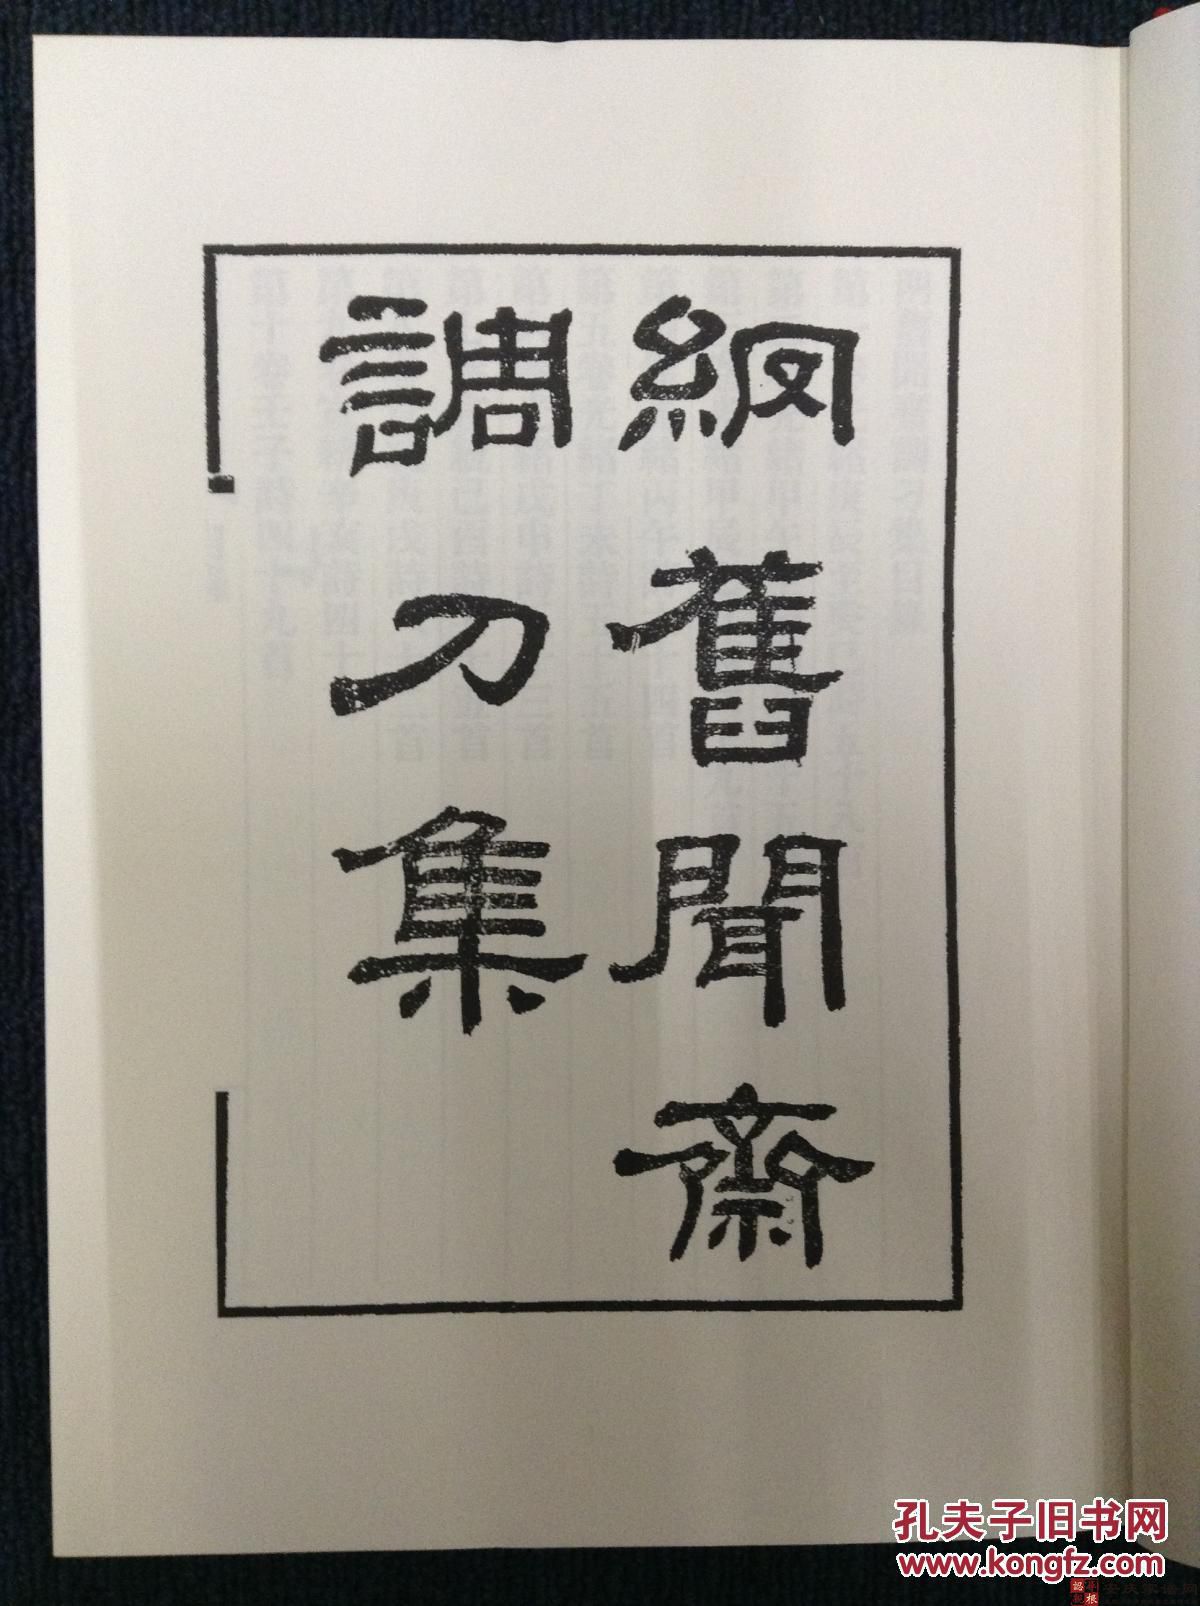 網舊聞齋
調刁集
孔夫子旧书网
www.kongfz.com